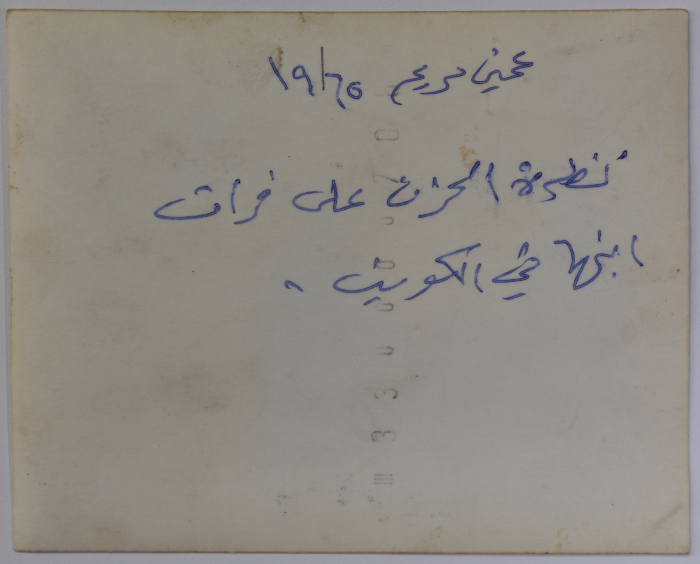 عمتي مريم ١٩٦٥
نظرة الحزن على فراق
ابنها في الكويت .